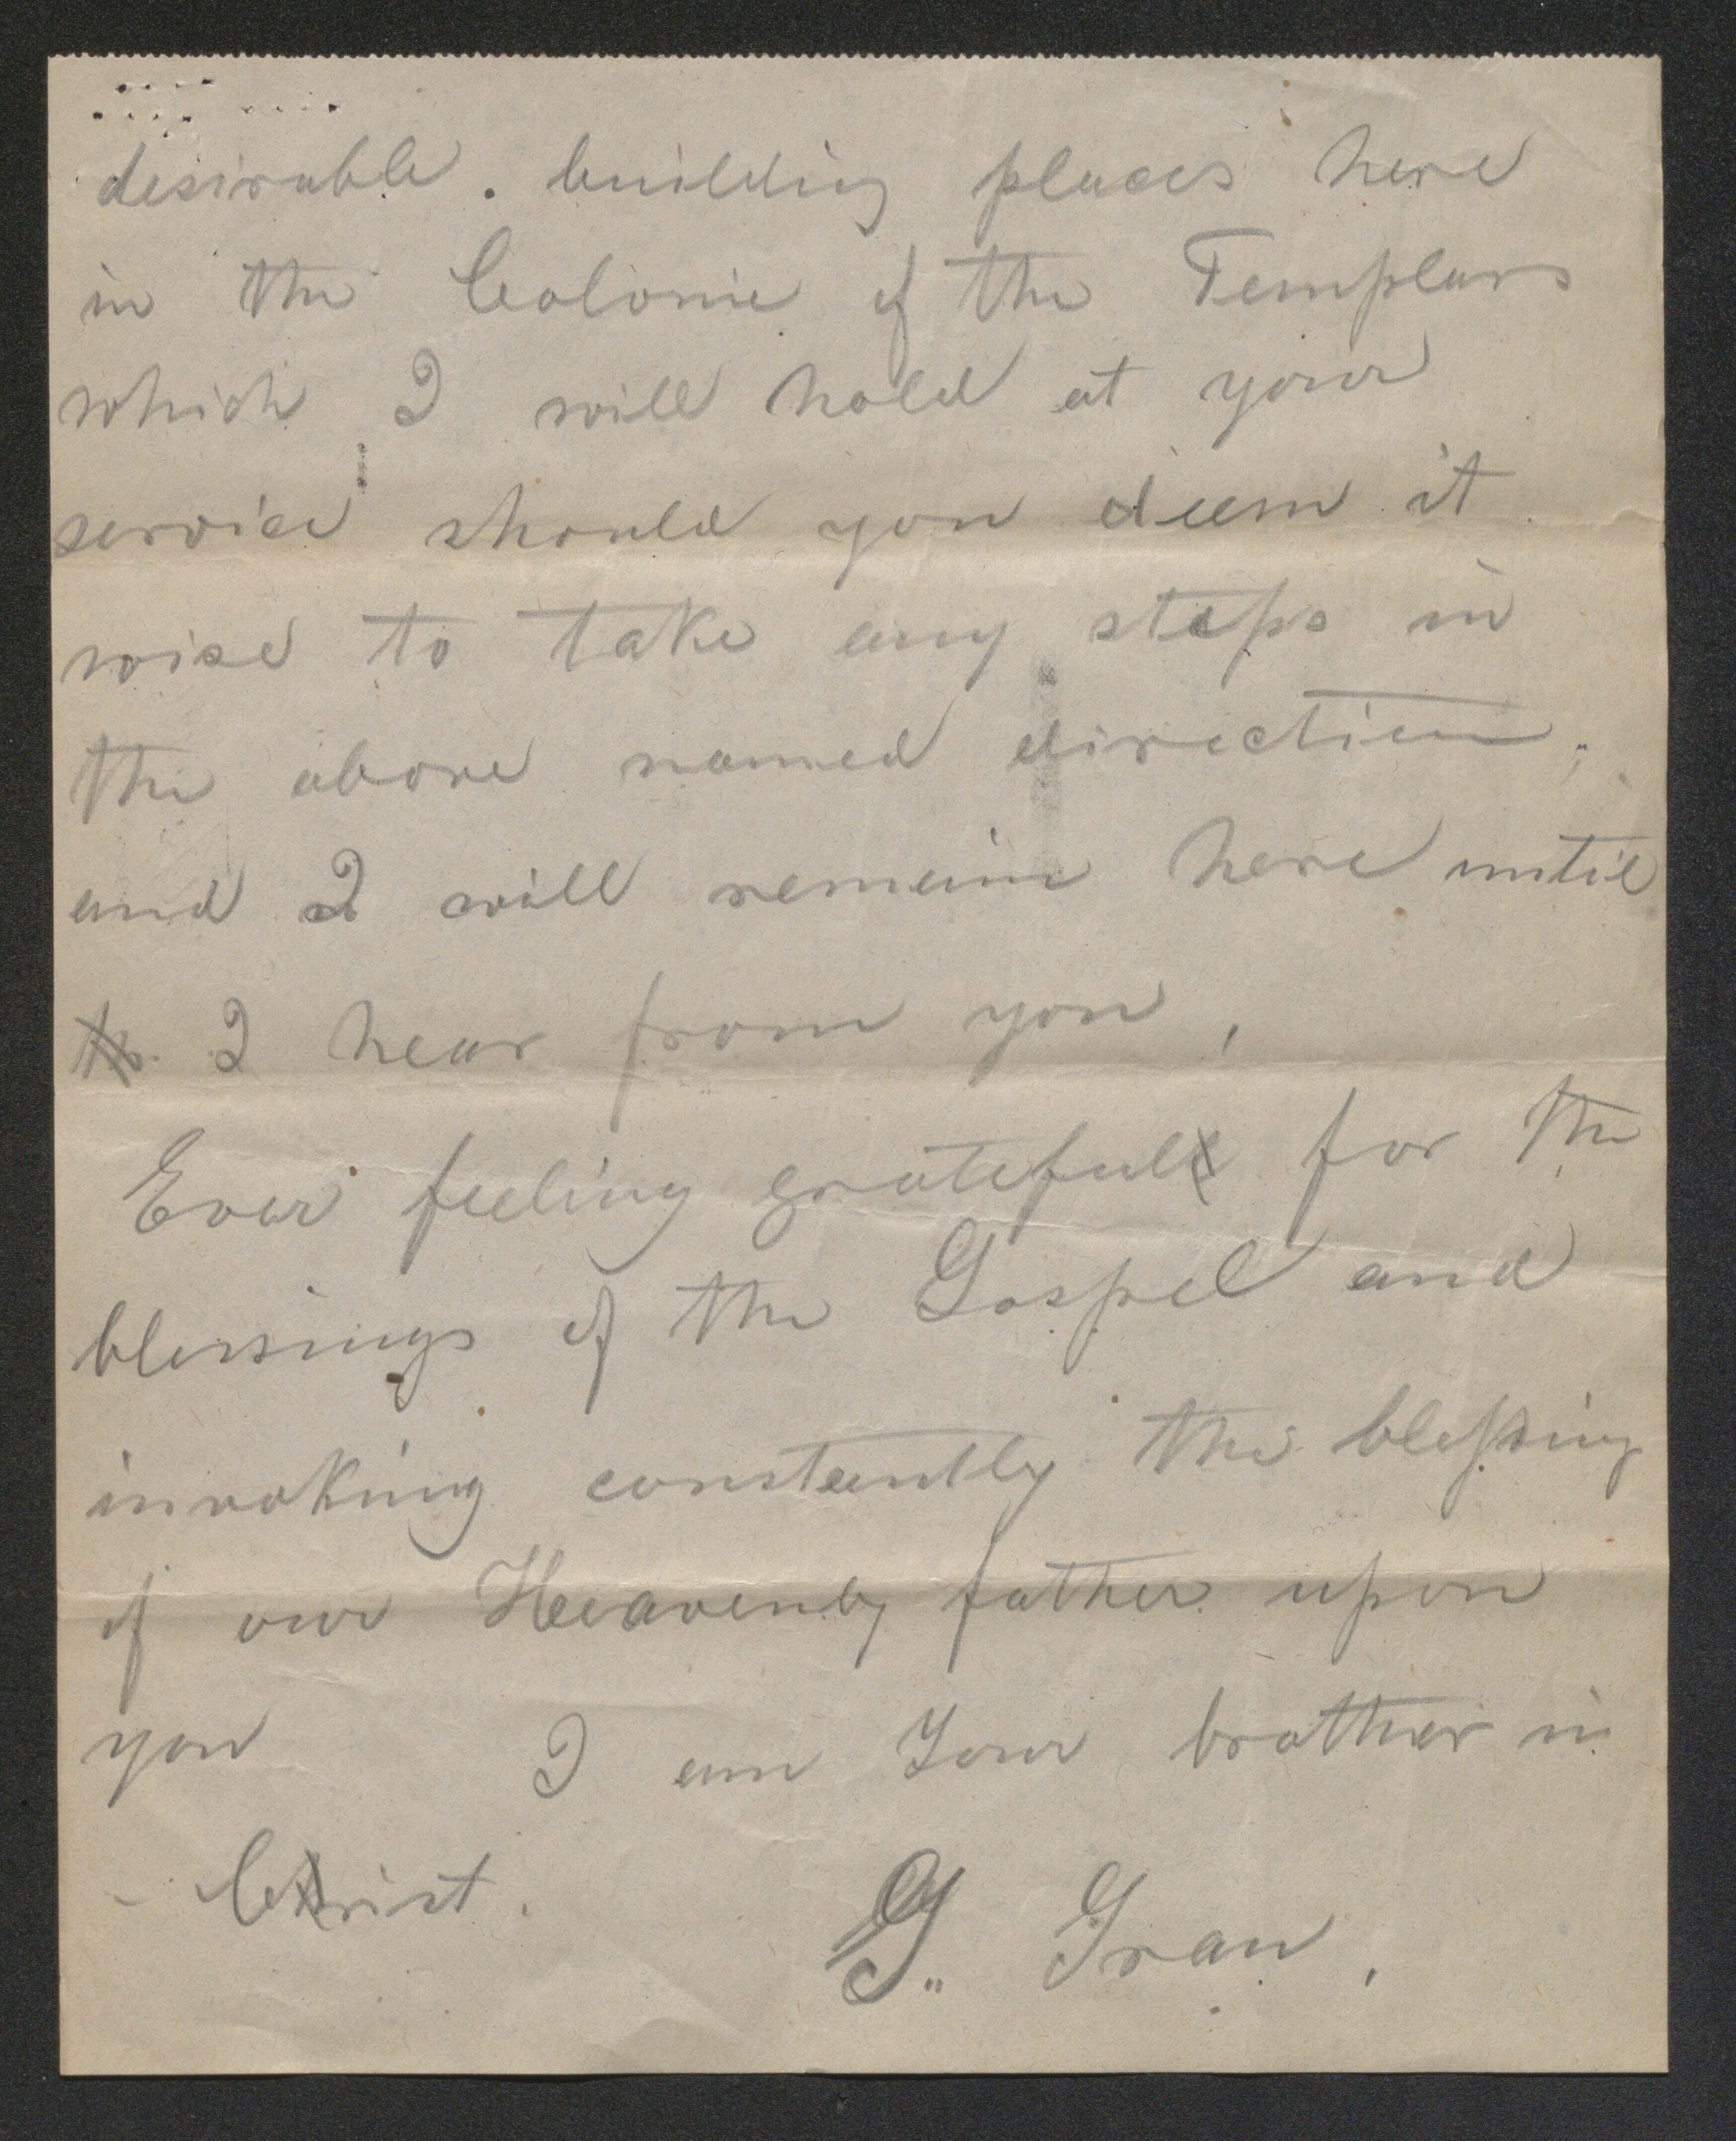 desirable. building places here
in the Colonie of the Templars
which I will hold at your
service should you deem it
wise to take any steps in
the above named direction;
and I will remain here until
I hear from you,
Ever feeling grateful for the
blessings of the Gospel and
invoking constantly the blessing
of our Heavenly father upon
you I am Your brother in
Christ.
G. Grau,